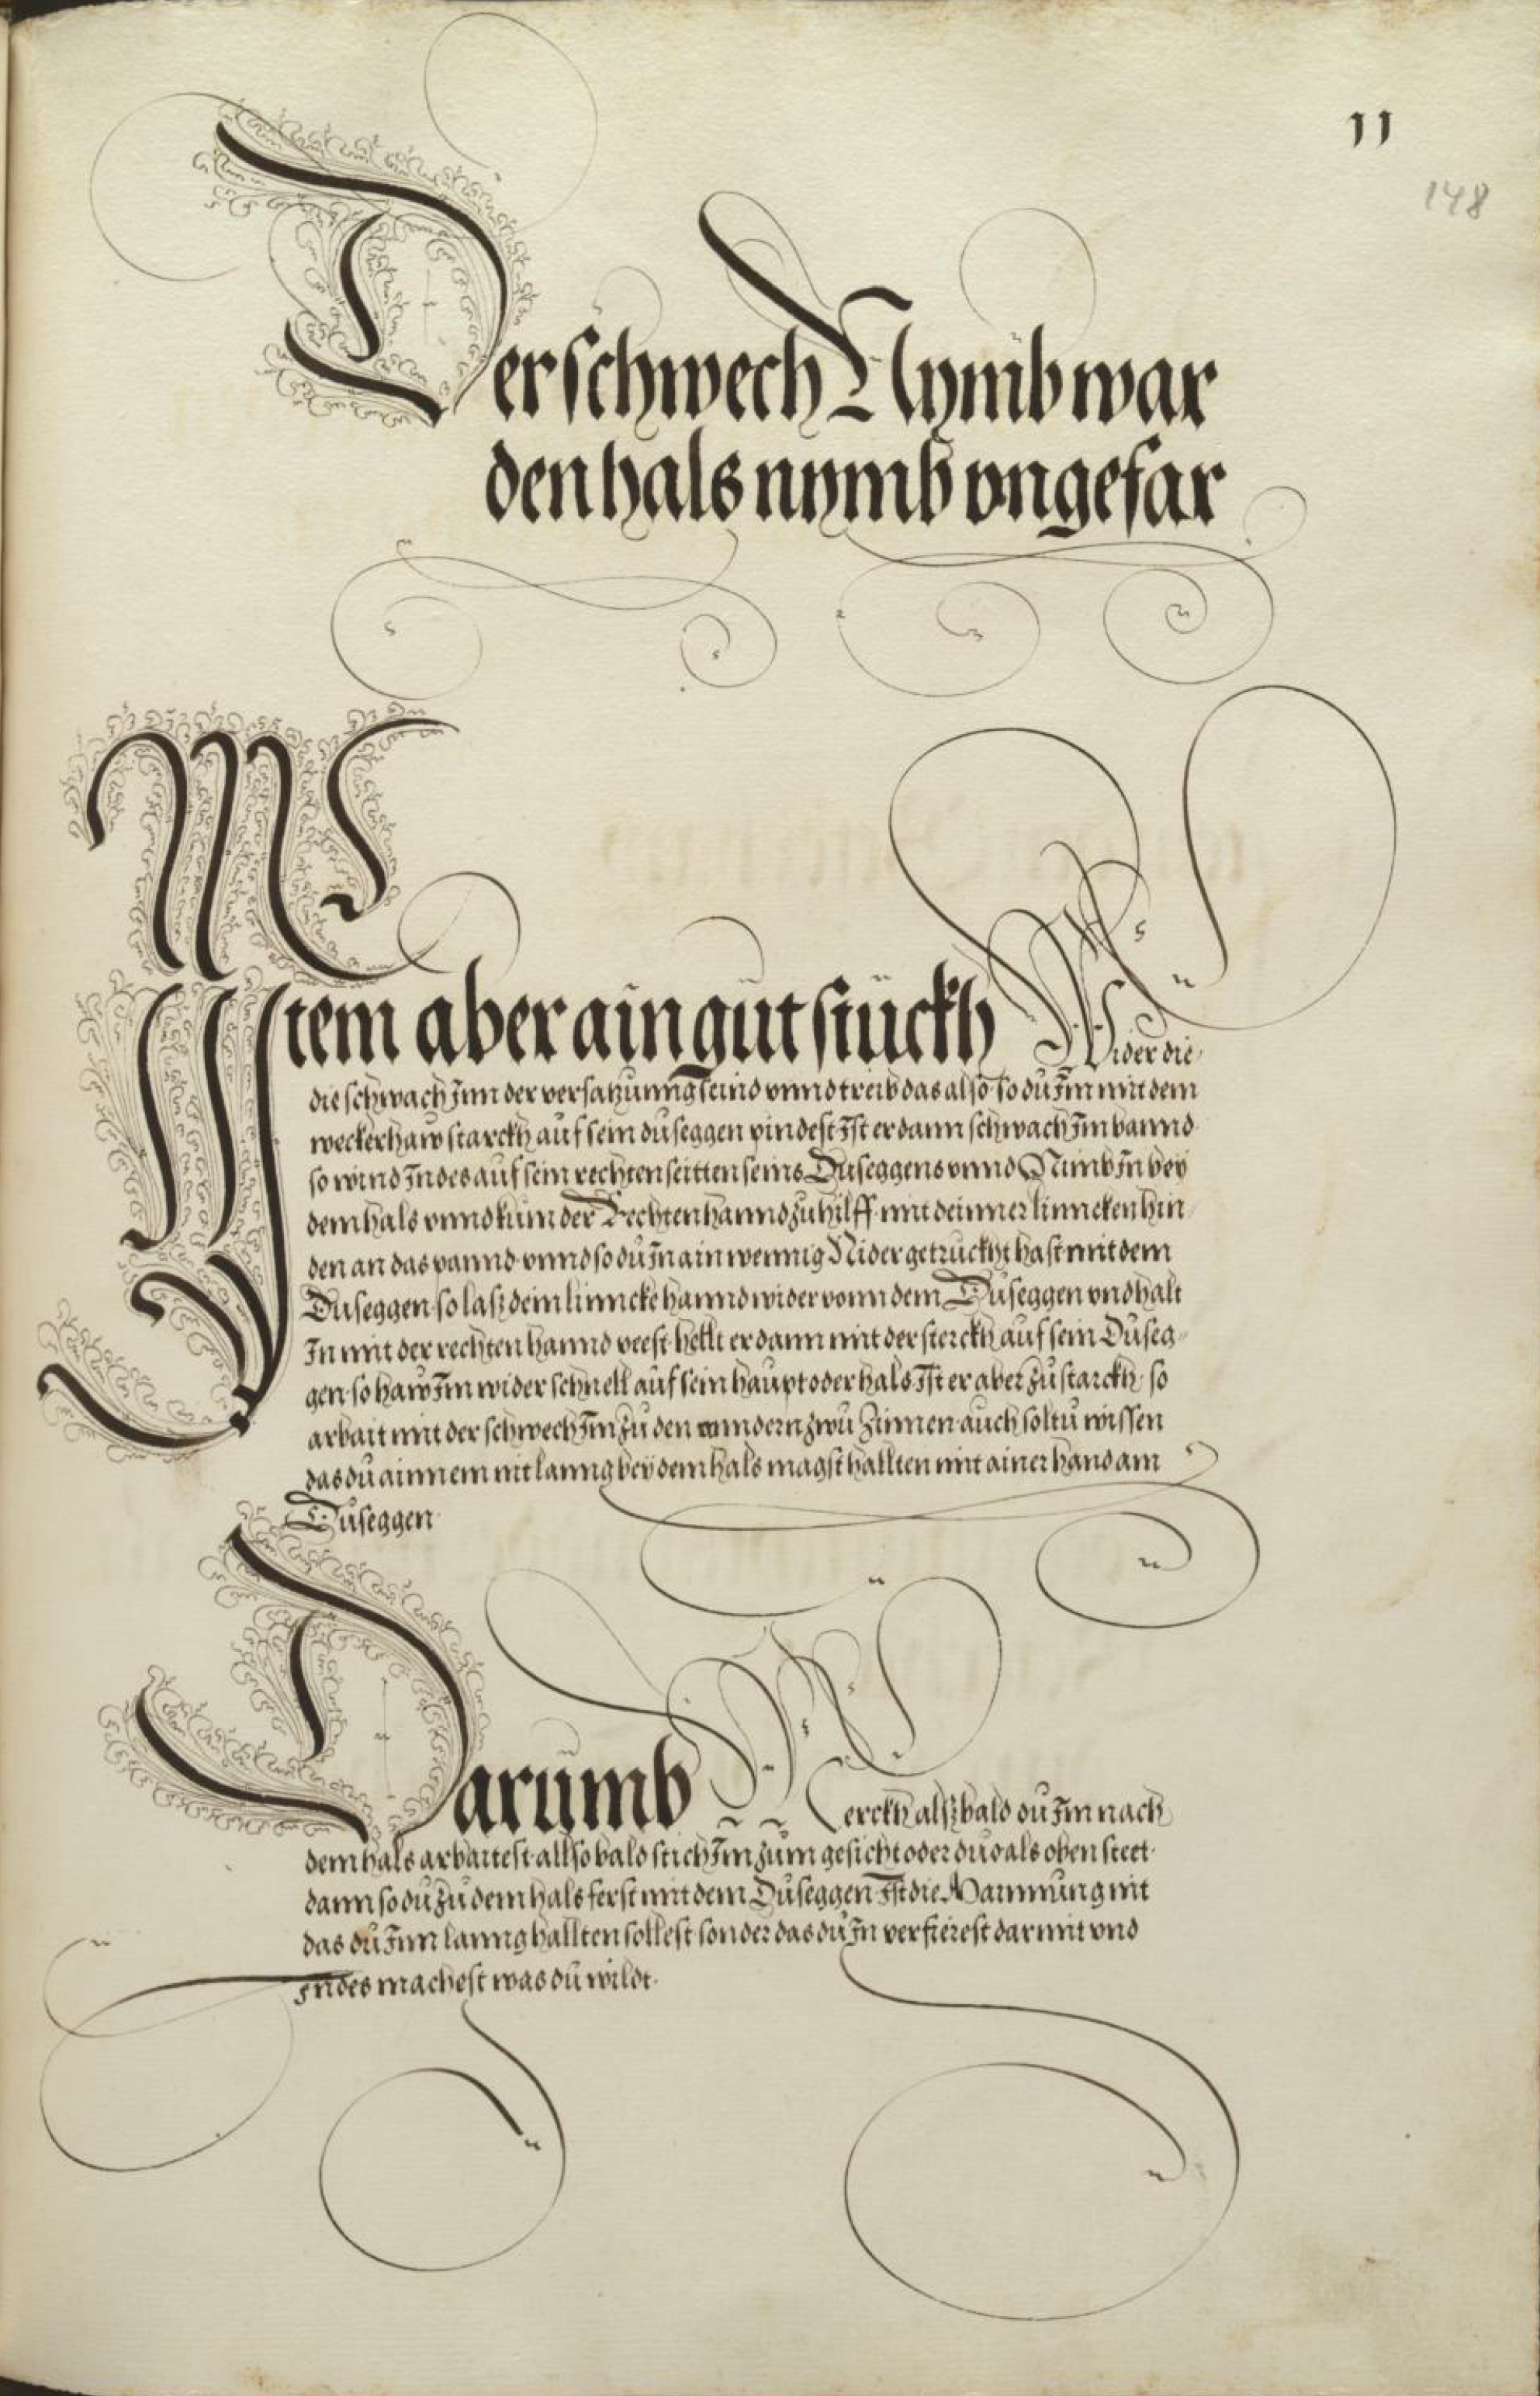 11
148
Der schwech Nymb war
den hals nymb vngefar
Item aber ain gūt stückh Wider die
die schwach Inn der versatzunng seind vnnd treib das also so dū Im mit dem
weckerhaw starckh auf sein dūseggen pindest Ist er dann schwach Im bannd
so wind Indes auf sein rechten seitten seins Dūseggens vnnd Nimb In bey
dem hals vnnd kūm der Rechten hannd zū hilff mit deinner linncken hin
den an das pannd vnnd so dū In ain wennig Nider getruckht hast mit dem
Dūseggen so lasz dein linncke hannd wider vonn dem Dūseggen vnd halt
In mit der rechten hannd veest hellt er dann mit der sterckh auf sein Dūseg
gen so haw Im wider schnell auf sein haupt oder hals Ist er aber zū starckh so
arbait mit der schwech Im zū den anndern zwū Zinnen auch soltū wissen
das dū ainnem nit lanng bey dem hals magst hallten mit ainer hand am
Dūseggen
Darūmb Merckh alszbald dū Im nach
dem hals arbaitest allso bald stich Im zūm gesicht oder dūals oben steet
dann so dū zū dem hals ferst mit dem Dūseggen Ist die Mainnūng nit
das dū Inn lanng hallten sollest sonder das dū In verfierest darmit vnd
Indes machest was dū wildt